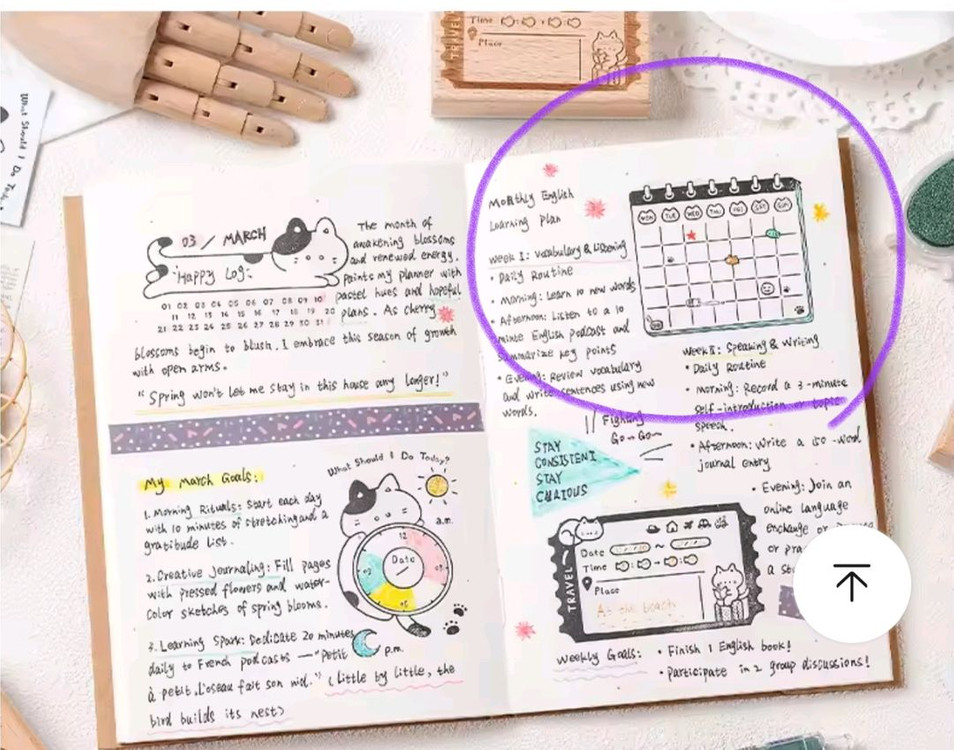 TRAVEL
Time
Place
What Should I Do Today?
03 / MARCH
Happy Log
01 02 03 04 05 06 07 08 09 10
11 12 13 14 15 16 17 18 19 20
21 22 23 24 25 26 27 28 29 30 31
The month of
awakening blossoms
and renewed energy.
Paints my planner with
pastel hues and hopeful
plans. As cherry
blossoms begin to blush, I embrace this season of growth
with open arms.
"Spring won't let me stay in this house any longer!"
My March Goals:
1. Morning Rituals: Start each day
with 10 minutes of stretching and a
gratitude list.
2. Creative Journaling: Fill pages
with pressed flowers and water-
color sketches of spring blooms.
3. Learning Spark: Dedicate 20 minutes
daily to French podcasts — "Petit
à petit, l'oseau fait son nid." (little by little, the
bird builds its nest)
What Should I Do Today?
a.m.
12
Date
p.m.
Monthly English
Learning Plan
Week I: Vocabulary & Listening
• Daily Routine
• Morning: Learn 10 new words
• Afternoon: Listen to a 10
minte English podcast and
summarize key points
• Evening: Review vocabulary
and write sentences using new
words.
MON TUE WED THU FRI SAT SUN
Week II: Speaking & Writing
• Daily Routine
• Morning: Record a 3-minute
self-introduction or topic
speech.
• Afternoon: Write a 150-word
journal entry
• Evening: Join an
online language
exchange or
or
a
Fighting
Go~Go~
STAY
CONSISTENT
STAY
CURIOUS
TRAVEL
Date ~
Time
Place
At the beach
Weekly Goals:
• Finish 1 English book!
• Participate in 2 group discussions!